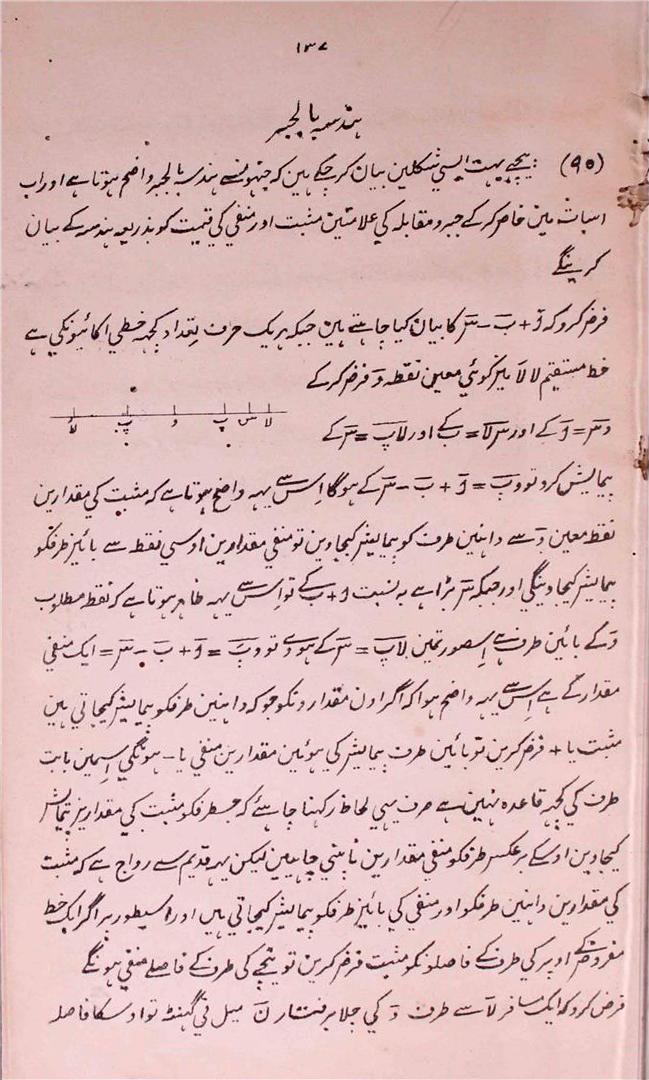 ۱۳۷
ہندسہ بالجبر
(۹۰) پیچے بہت ایسي شکلین بیان کر چکے ہین کہ جنہونسے ہندسہ بالجبر واضح ہوتا ہے اور اب
اسبات مین خاص کر کے جبر و مقابلہ کي علامتین مثبت اور منفي کي قیمت کو بذریعہ ہندسہ کے بیان
کرینگے
فرض کرو کہ وَ + بَ - سَ کا بیان کیا چاہتے ہین جبکہ ہریک حرف بتعداد کچہہ خطي اکائیونکي ہے
خط مستقیم لا لاَ پر کوئي معین نقطہ وَ فرض کر کے
وسَ = وَ کے اور سَ لاَ = بَ کے اور لاپَ = سَ کے
لا س پ و پَ لاَ
پیمایش کرو تو وپَ = وَ + بَ - سَ کے ہوگا اِس سے یہہ واضح ہوتا ہے کہ مثبت کي مقدارین
نقطہ معین وَ سے داہنین طرف کو پیمایش کیجاوین تو منفي مقدارین اوسي نقطہ سے بائین طرفکو
پیمایش کیجاوینگي اور جبکہ سَ بڑا ہے بہ نسبت و + ب کے تو اِس سے یہہ ظاہر ہوتا ہے کہ نقطہ مطلوب
وَ کے بائین طرف ہے اِسصورتمین لاپَ = سَ کے ہووے تو وپَ = وَ + بَ - سَ = ایک منفي
مقدار کے ہے اِس سے یہہ واضح ہوا کہ اگر اون مقدارونکو جو کہ داہنین طرفکو پیمایش کیجاتي ہین
مثبت یا + فرض کرین تو بائین طرف پیمایش کي ہوئین مقدارین منفي یا - ہونگي اِسمین بابت
طرف کي کچہہ قاعدہ نہین ہے صرف یہي لحاظ رکہنا چاہئے کہ جسطرفکو مثبت کي مقدارین پیمایش
کیجاوین اوسکے برعکس طرفکو منفي مقدارین ناپني چاہیین لیکن یہہ قدیم سے رواج ہے کہ مثبت
کي مقدارین داہنین طرفکو اور منفي کي بائین طرفکو پیمایش کیجاتي ہیں اور اسیطور پر اگر ایک خط
مفروض کے اوپر کي طرف کے فاصلونکو مثبت فرض کرین تو نیچے کي طرف کے فاصلے منفي ہونگے
فرض کرو کہ ایک مسافر لاَ سے طرف وَ کي چلا برفتار نَ میل في گہنٹہ تو اوسکا فاصلہ